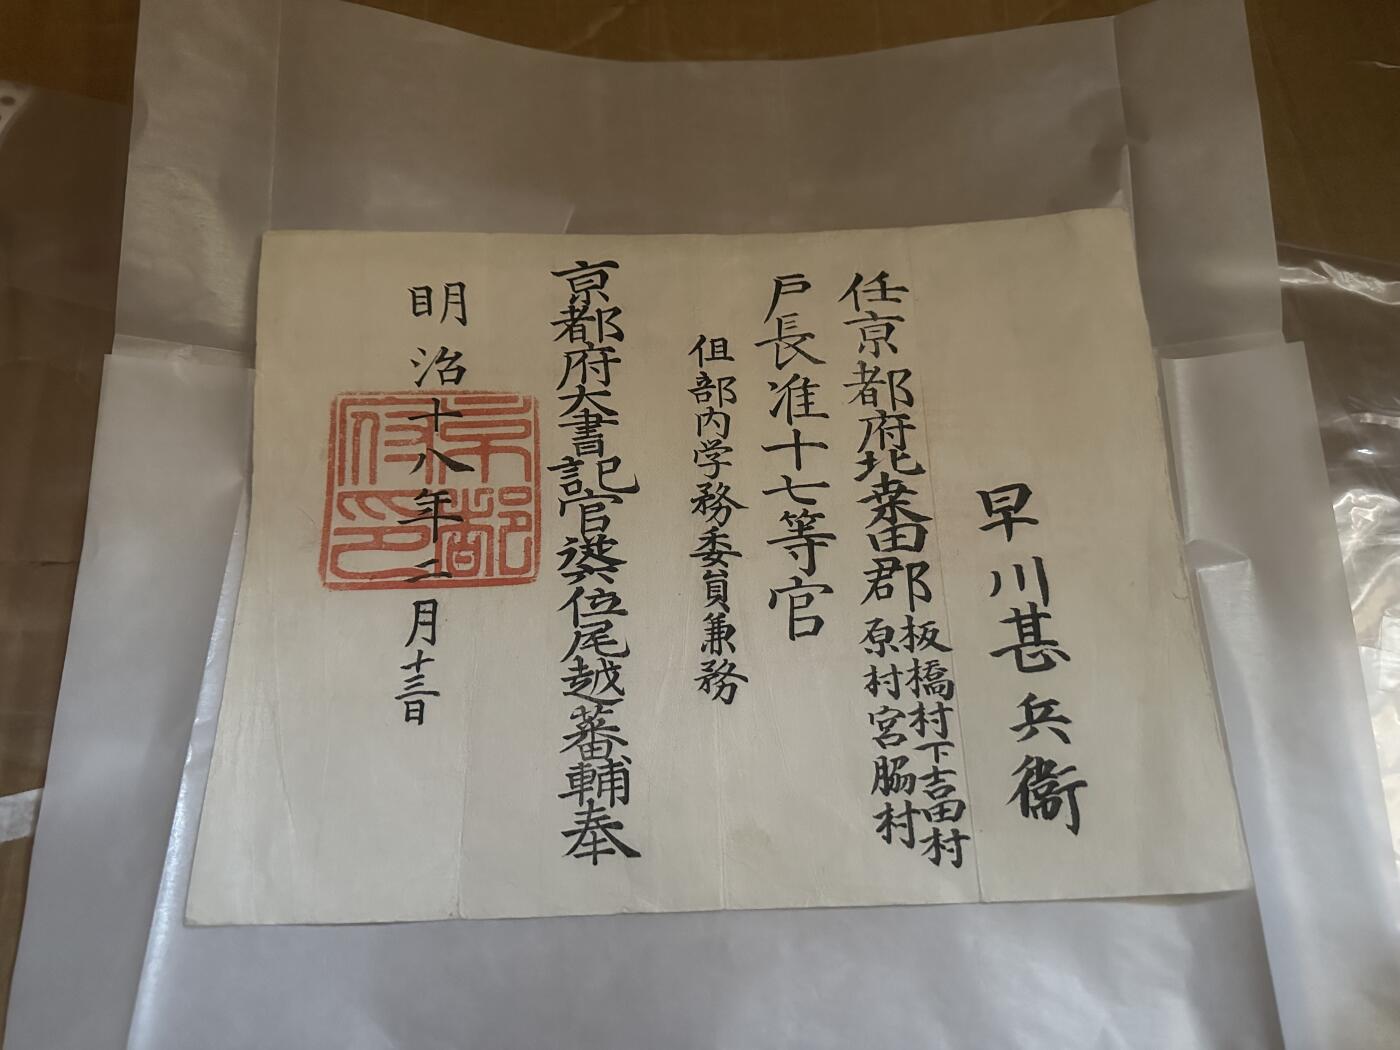 早川甚兵衞
任京都府北桒田郡板橋村下吉田村
原村宮脇村
戸長准十七等官
但部内学務委員兼務
京都府大書記官従六位尾越蕃輔奉
明治十八年二月十三日
京都
府印